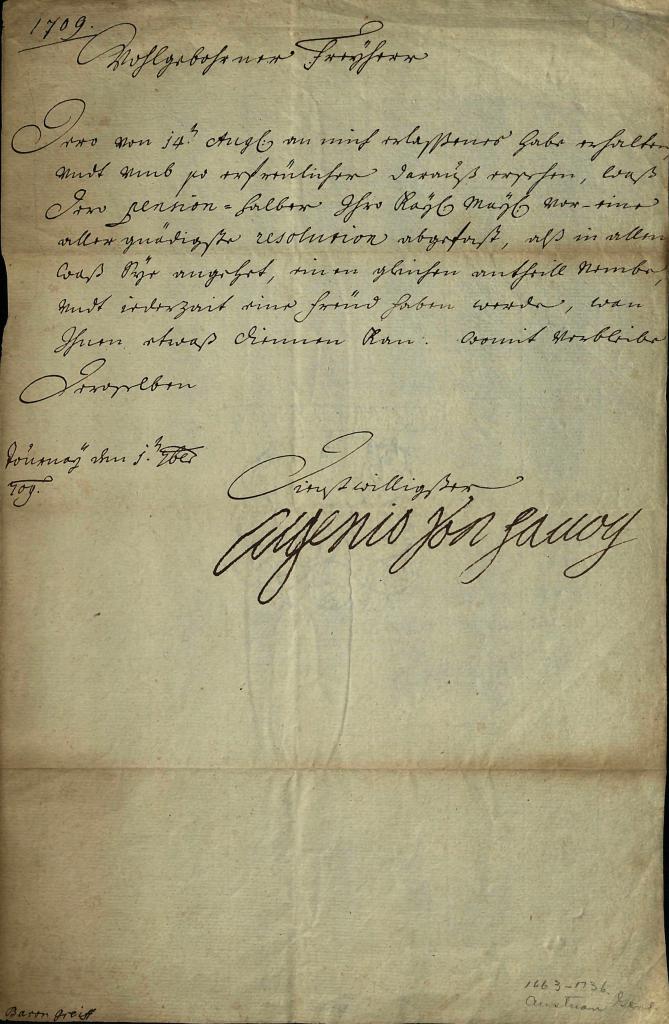 1709.
Wohlgebohrner Freyherr
Dero von 14.ᵗ Augᵗ: an mich erlaßenes habe erhalten
undt umb so erfreülicher darauß ersehen, waß
Dero pension = halber Ihro Kayl Mayl vor eine
allergnädigste resolution abgefast, alß in allem
waß Sye angehet, einen gleichen antheill nembe,
undt iederzait eine freüd haben werde, wan
Ihnen etwaß diennen kan. womit verbleibe
Deroselben
Tournay den 1.ᵗ 7ber
709.
Dienstwilligster
Eugenio von Savoy
1663-1736
Austrian
Baron Greiff